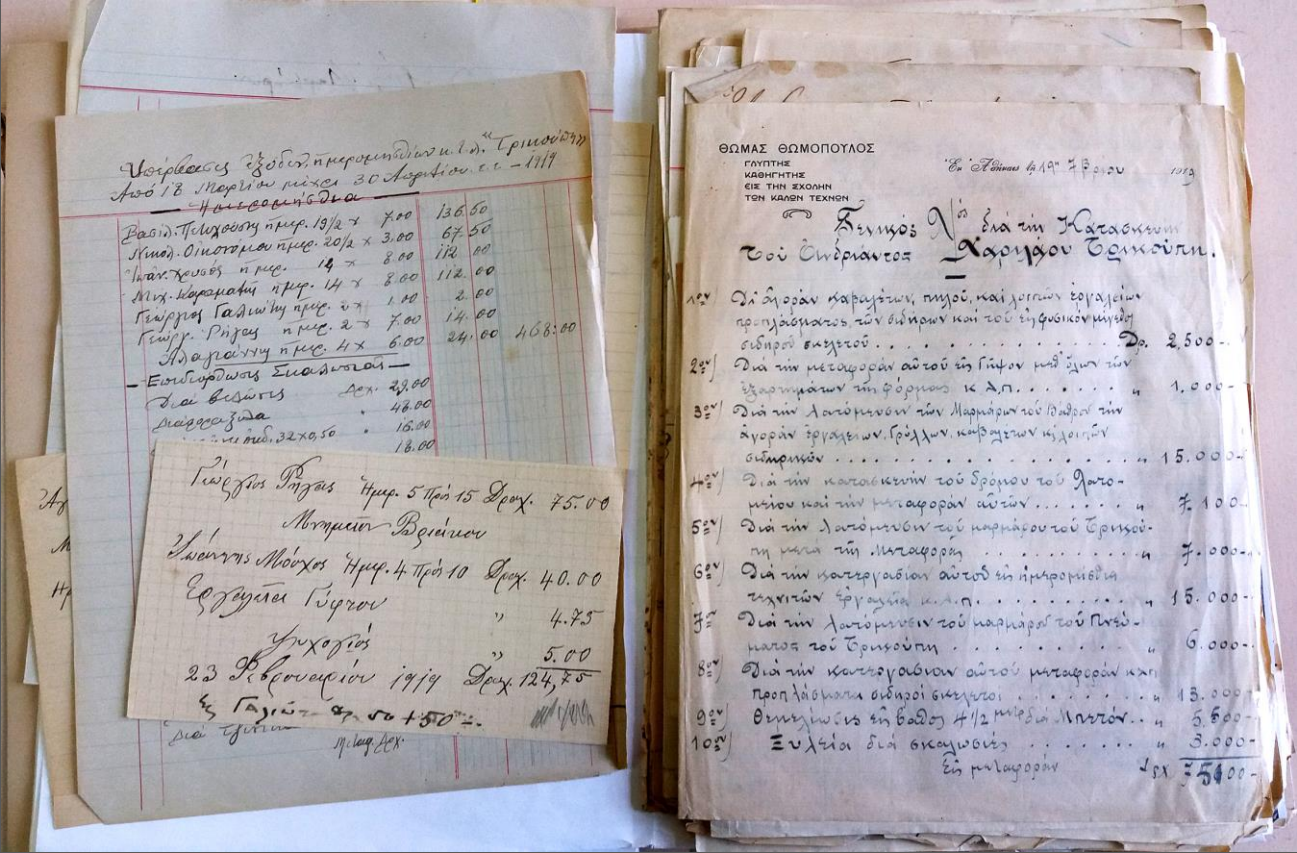 Ὑπέρβασις ἐξόδων ἡμερομισθίων κ.τ.λ. "Τρικούπη"
Ἀπὸ 18 Μαρτίου μέχρι 30 Ἀπριλίου ε.ε. - 1919
Ἡμερομίσθια
Βασίλ. ἡμερ. 19½ × 7.00 136.50
Νικολ. Οἰκονόμου ἡμερ. 20/2 × 3.00 67.50
Ἰωάν. Χρυσὸς ἡμερ. 14 × 8.00 112.00
Μιχ. Καραματῆ ἡμερ. 14 × 8.00 112.00
Γεώργιος Γαλιώτη ἡμερ. 2 × 1.00 2.00
Γεώργ. Ρήγας ἡμερ. 2 × 7.00 14.00
Ἀλαγιάννη ἡμερ. 4 × 6.00 24.00 468:00
Ἐπιδιόρθωσις Σκαλωσιᾶς
Διὰ Δρχ. 29.00
Διάφορα ξύλα " 48.00
32×0,50 " 16.00
18.00
Γεώργιος Ρήγας Ἡμερ. 5 Πρὸς 15 Δραχ. 75.00
Μνημεῖον
Ἰωάννης Μόσχος Ἡμερ. 4 Πρὸς 10 Δραχ. 40.00
Ἐργαλεῖα Γύφτου " 4.75
Ψυχογιός " 5.00
23 Φεβρουαρίου 1919 Δραχ. 124,75
+50
ΘΩΜΑΣ ΘΩΜΟΠΟΥΛΟΣ
ΓΛΥΠΤΗΣ
ΚΑΘΗΓΗΤΗΣ
ΕΙΣ ΤΗΝ ΣΧΟΛΗΝ
ΤΩΝ ΚΑΛΩΝ ΤΕΧΝΩΝ
Ἐν Ἀθήναις τῇ 19ῃ 7βρίου 1919
Γενικὸς Λ/σμὸς διὰ τὴν Κατασκευὴν
τοῦ Ἀνδριάντος Χαριλάου Τρικούπη.
1ον/ Δι' ἀγορὰν καβαλέτων, πηλοῦ, καὶ λοιπῶν ἐργαλείων
προπλάσματος, τῶν σιδήρων καὶ τοῦ εἰς φυσικὸν μέγεθος
σιδηροῦ σκελετοῦ . . . . . . Δρ. 2,500-
2ον/ Διὰ τὴν μεταφορὰν αὐτοῦ εἰς Γύψον μεθ' ὅλων τῶν
ἐξαρτημάτων τῆς φόρμας κ.λ.π. . . . . " 1.000-
3ον/ Διὰ τὴν λατόμευσιν τῶν Μαρμάρων τοῦ Βάθρου τὴν
ἀγορὰν ἐργαλείων, Γρύλλων, καβαλέτων κ/ λοιπῶν
σιδηρικῶν . . . . . . " 15.000-
4ον/ Διὰ τὴν κατασκευὴν τοῦ δρόμου τοῦ Λατο-
μείου καὶ τὴν μεταφορὰν αὐτῶν . . . . " 7.100-
5ον/ Διὰ τὴν λατόμευσιν τοῦ μαρμάρου τοῦ Τρικού-
πη μετὰ τῆς Μεταφορᾶς . . . . . . " 7.000-
6ον/ Διὰ τὴν κατεργασίαν αὐτοῦ εἰς ἡμερομίσθια
τεχνιτῶν ἐργαλεῖα κ.λ.π. . . . . . . " 15.000-
7ον/ Διὰ τὴν λατόμευσιν τοῦ μαρμάρου τοῦ Πνεύ-
ματος τοῦ Τρικούπη . . . . . . " 6.000-
8ον/ Διὰ τὴν κατεργασίαν αὐτοῦ μεταφορὰν καὶ
προπλάσματα σιδηροῖ σκελετοὶ . . . . " 13.000-
9ον/ Θεμελίωσις εἰς βάθος 4½ μετρ. διὰ Μπετόν . . " 5.500-
10ον/ Ξυλεία διὰ σκαλωσιές . . . . . " 3.000-
Εἰς μεταφορὰν